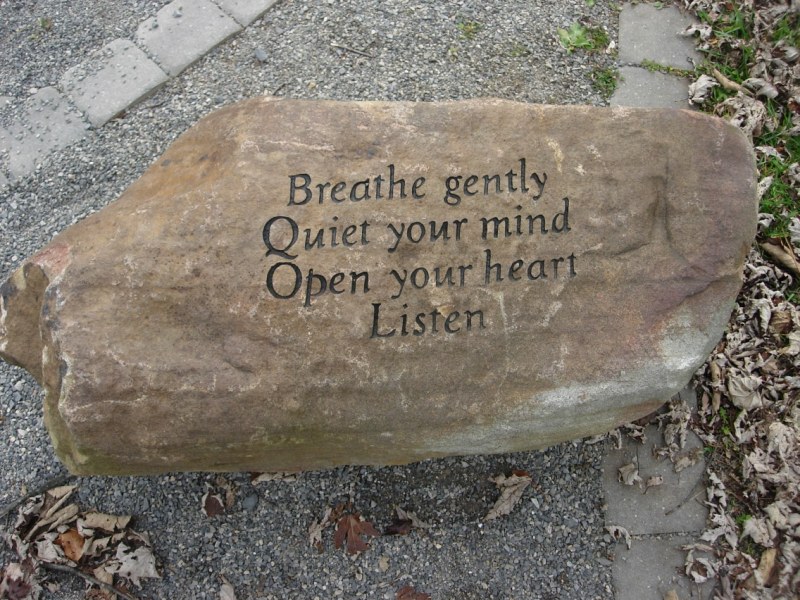 Breathe gently
Quiet your mind
Open your heart
Listen